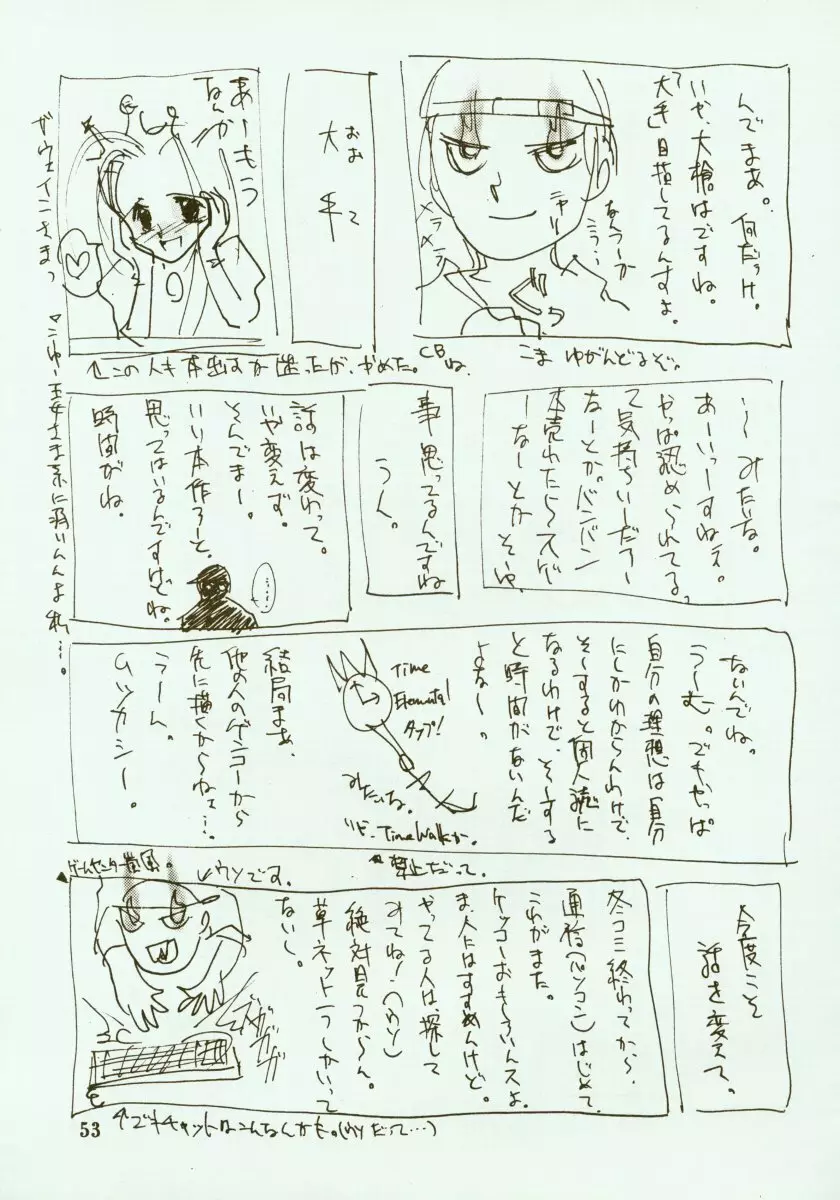 んでまあ。何だっけ。
いや、大槍はですね。
「大手」目指してるんすよ。
なんつーか
こう…
ニヤリ
メラ
メラ
こまゆがんどるぞ。
おお て
大手
あーもう
なんかー
ガウェインさまっ
↑この人も本出すか迷ったが、やめた。
CBね。
〜みたいな。
あーいっすねェ。
やっぱ認められてる。
て気持ちいーだろー
なーとか。バンバン
本売れたらスゲ
ーなーとかそーゆ
事思ってるんですね
うん。
話は変わって。
いや変えず。
そんでまー。
いい本作ろーと、
思ってはいるんですけどね。
時間がね。
ないんでね。
うーむ。でもやっぱ
自分の理想は自分
にしかわからんわけで、
そーすると個人誌に
なるわけで、そーする
と時間がないんだ
よなー。
Time
Elemental
タップ!
みたいな。
Time Walkか。
禁止だって。
結局まあ、
他の人のゲンコーから
先に描くからねェ…。
うーん。
ムツカシー。
今度こそ
話を変えて。
冬コミ終わってから、
通信(パソコン)はじめて、
これがまた。
ケッコーおもしろいんスよ。
ま、人にはすすめんけど。
やってる人は探して
みてねー!(ウソ)
絶対見つからん。
草ネット一つしかいって
ないし。
ゲームセンター
↙ウソです。
ガガガガ
↑でもチャットはこんなんかも。(ウソだって…)
53